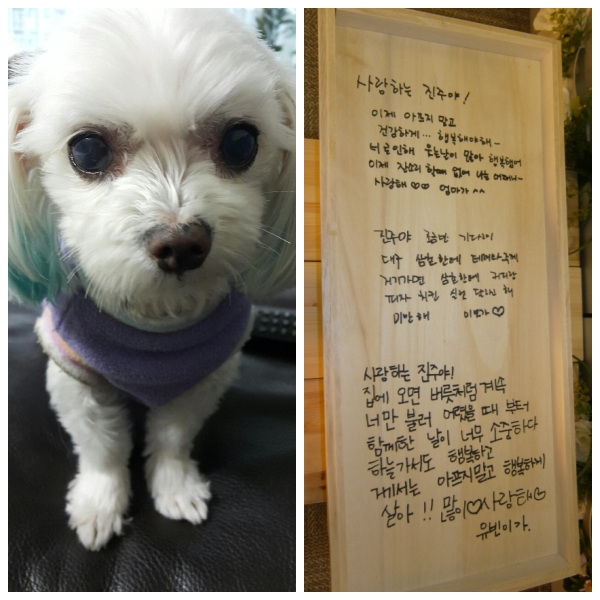 사랑하는 진주야!
이제 아프지 말고
건강하게... 행복해야해~
너로 인해 웃는날이 많아 행복했어
이제 잔소리 할때 없어 나는 어쩌니~
사랑해 ♡♡ 엄마가 ^^
진주야 한번
대구 삼촌한테
거기가면 삼촌한테
피자 치킨 해
미안해 이모가 ♡
사랑하는 진주야!
집에 오면 버릇처럼 계속
너만 불러 어렸을 때 부터
함께한 날이 너무 소중하다
하늘가서도 행복하고
거기서는 아프지말고 행복하게
살아 !! 많이♡사랑해♡
유빈이가.